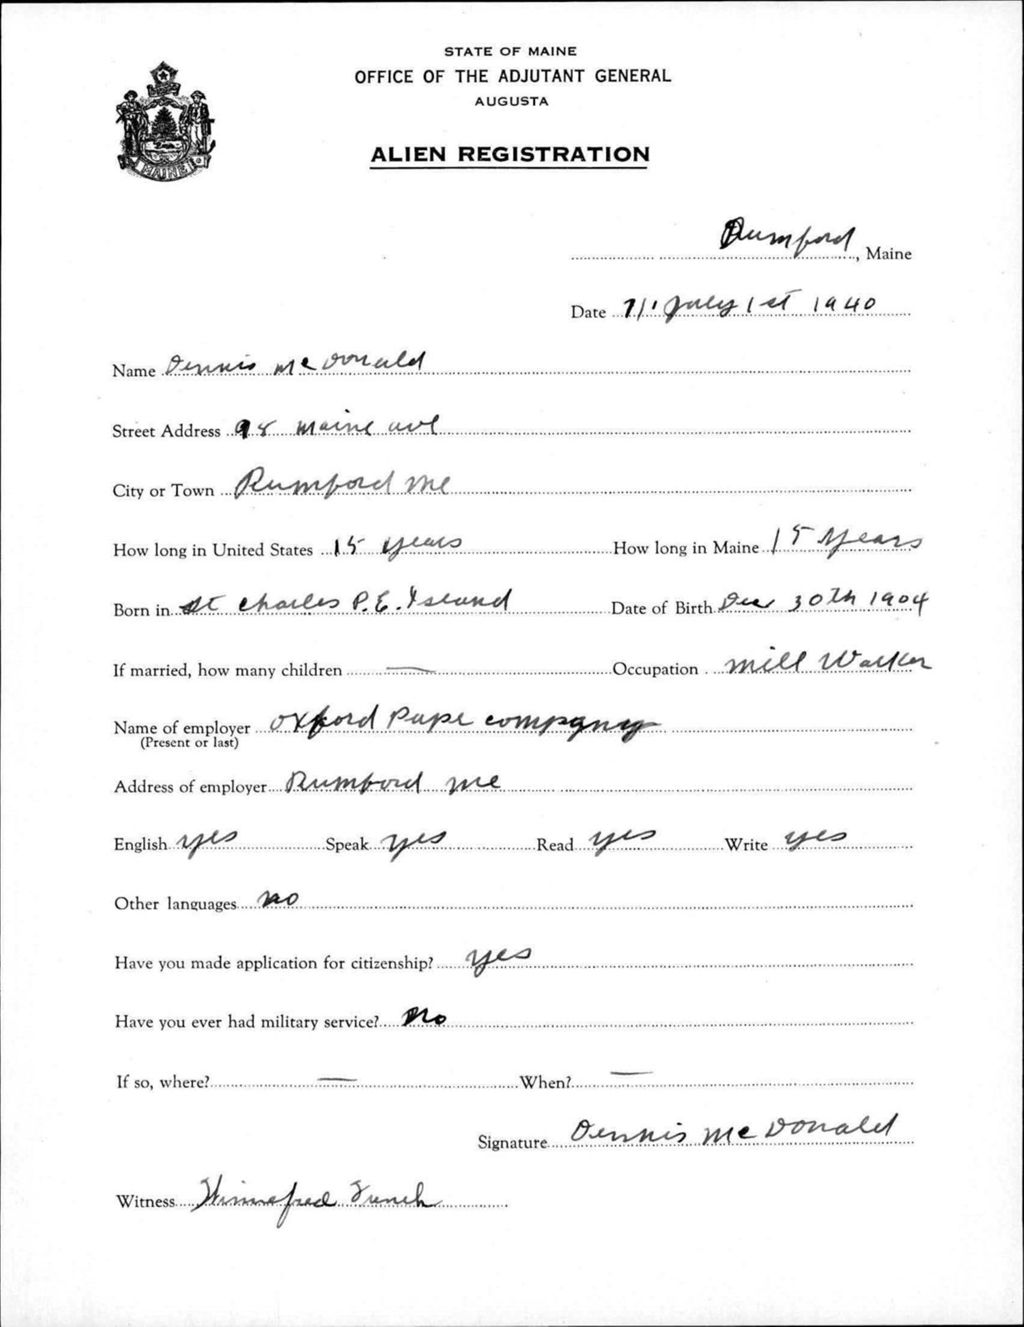 STATE OF MAINE
OFFICE OF THE ADJUTANT GENERAL
AUGUSTA
ALIEN REGISTRATION
MAINE
Rumford, Maine
Date July 1st 1940
Name Dennis McDonald
Street Address 98 Maine ave
City or Town Rumford Me
How long in United States 15 years How long in Maine 15 years
Born in St Charles P.E. Island Date of Birth Dec 30th 1904
If married, how many children — Occupation Mill Worker
Name of employer Oxford Pape company
(Present or last)
Address of employer Rumford Me
English yes Speak yes Read yes Write yes
Other languages no
Have you made application for citizenship? yes
Have you ever had military service? No
If so, where? — When? —
Signature Dennis McDonald
Witness Winnefred French